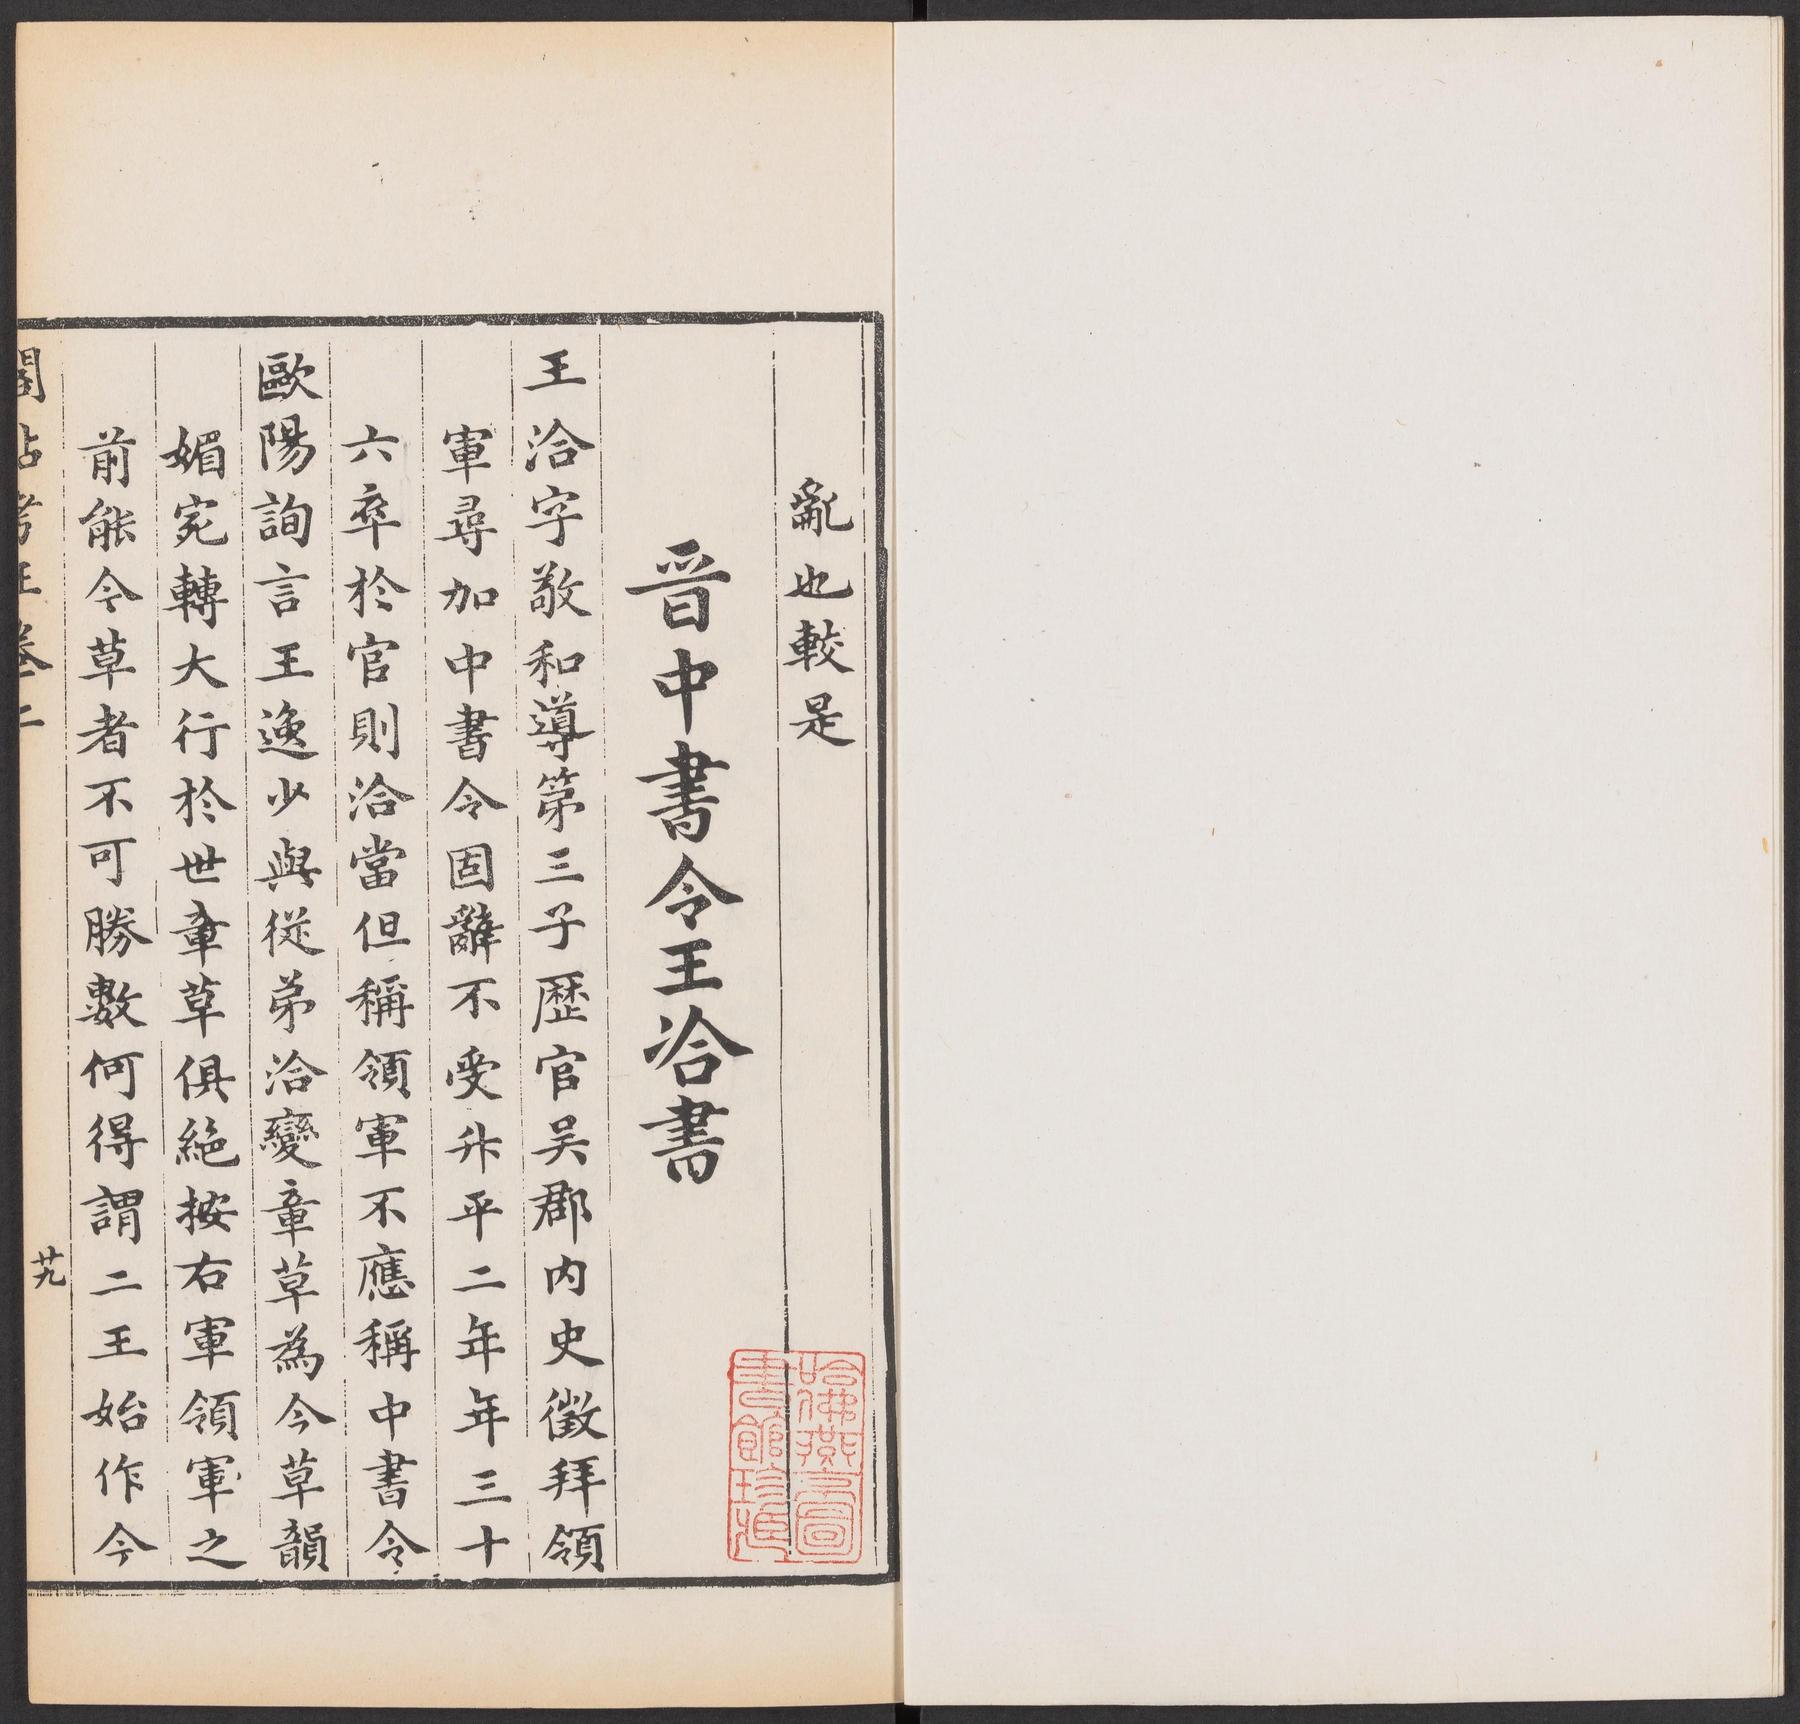 亂也較是
晉中書令王洽書
王洽字敬和導第三子歷官吴郡内史徵拜領
軍尋加中書令固辭不受升平二年年三十
六卒於官則洽當但稱領軍不應稱中書令
歐陽詢言王逸少與從弟洽變章草為今草韻
媚宛轉大行於世章草俱絕按右軍領軍之
前能今草者不可勝數何得謂二王始作今
閣帖考正卷二
廿九
哈佛燕京圖
書館珍藏